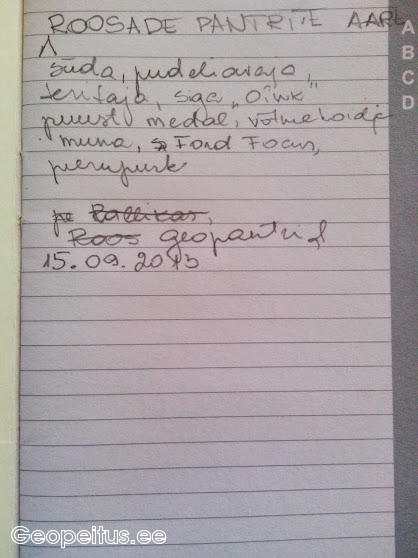 ROOSADE PANTRITE AARE
A
B
C
D
süda, pudeliavaja,
teritaja, siga "oink"
puust medal, võtmehoidja
muna, Ford Focus,
pe Rallikas,
Roos geopantrid
15.09.2013
Geopeitus.ee